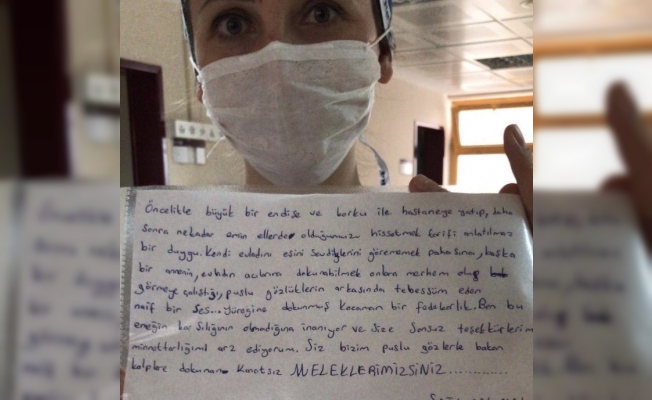 Öncelikle büyük bir endişe ve korku ile hastaneye yatıp, daha
sonra nekadar emin ellerde olduğumuzu hissetmek tarifi anlatılmaz
bir duygu. Kendi evladını eşini sevdiklerini görememek pahasına, başka
bir annenin, evladın acılarına dokunabilmek onlara merhem olup
görmeye çalıştığı, puslu gözlüklerin arkasında tebessüm eden
naif bir ses... yüreğine dokunmuş kocaman bir fedakarlık. Ben bu
emeğin karşılığının olmadığına inanıyor ve size sonsuz teşekkürlerimi
minnettarlığımı arz ediyorum. Siz bizim puslu gözlerle bakan
kalplere dokunan kanatsız MELEKLERİMİZSİNİZ............